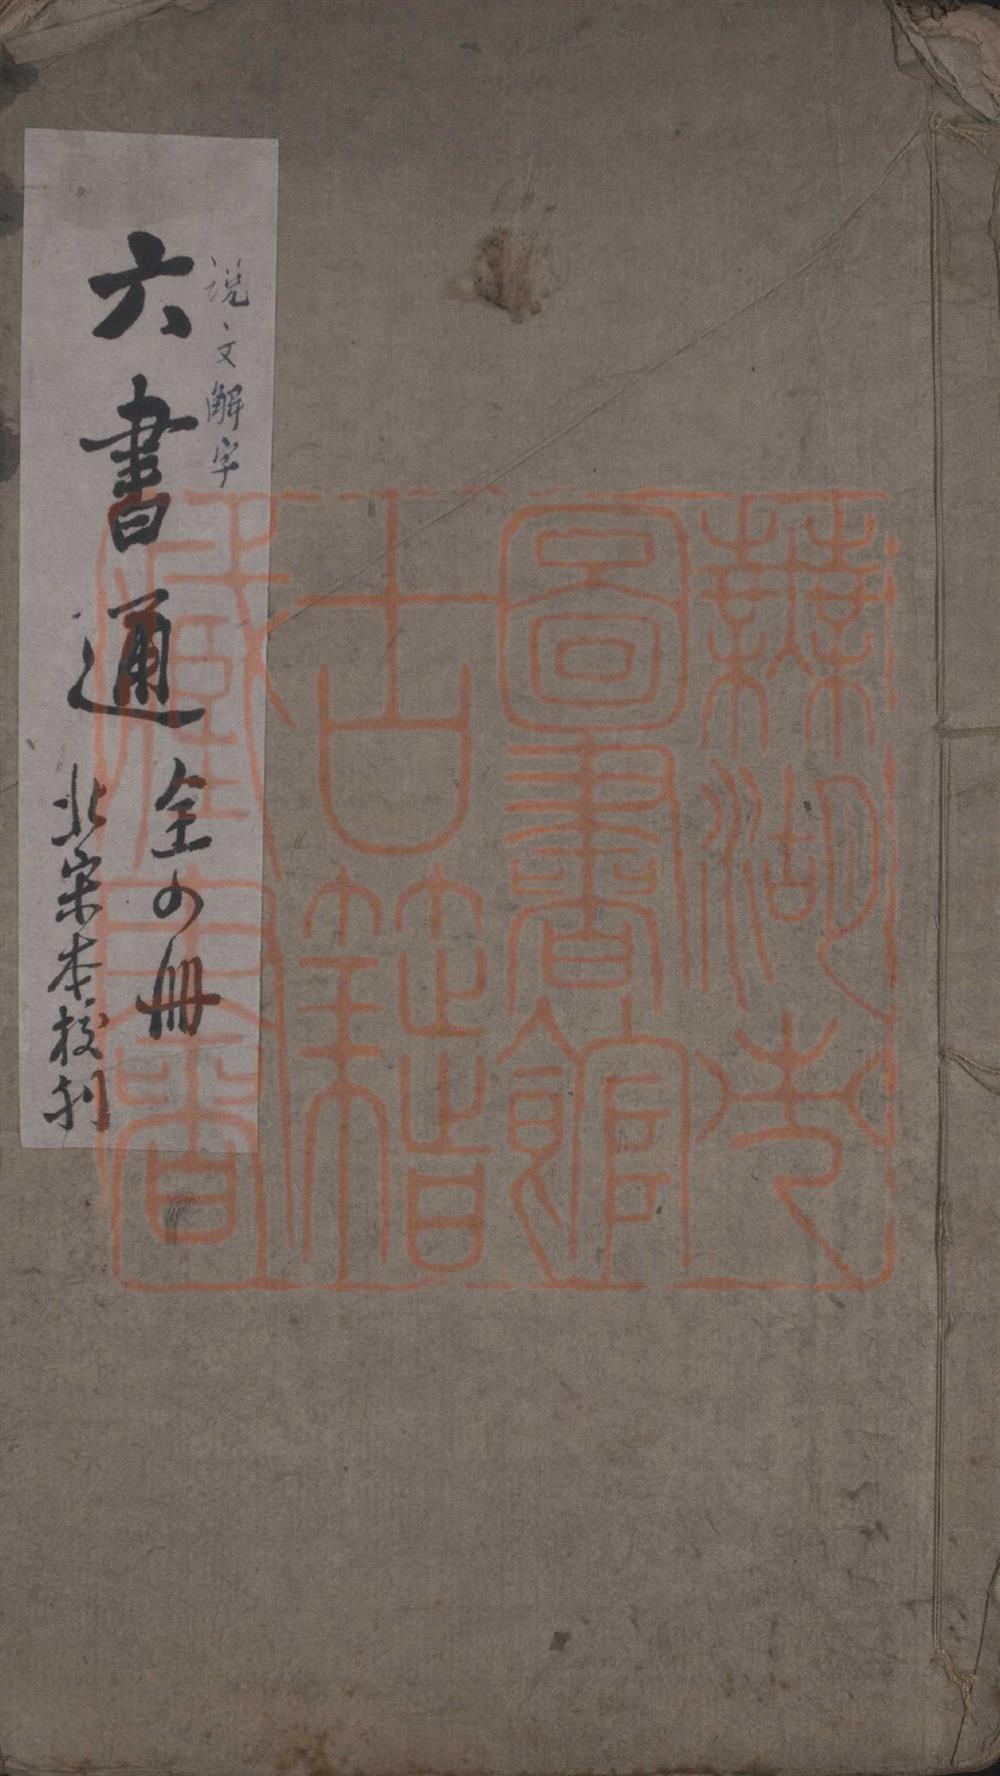 说文解字
六書通
全四册
北宋本校刊
蕪湖市
圖書館
古籍
藏書